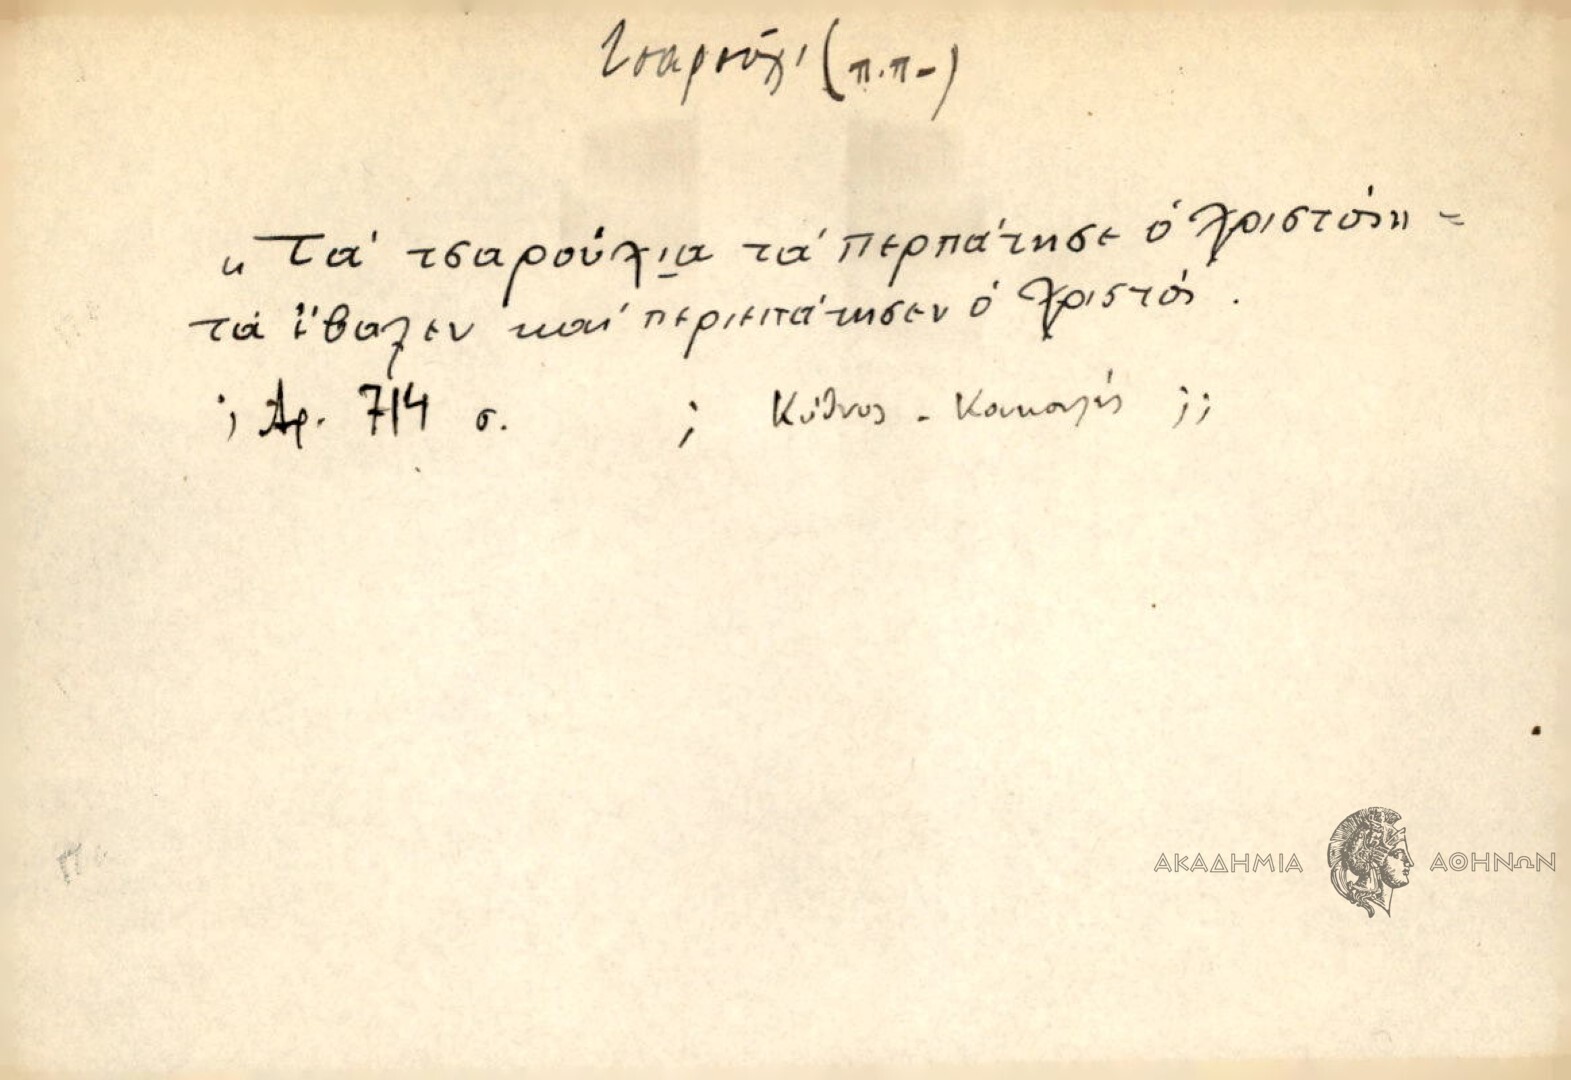 Τσαρούχι (π.π-)
"Τά τσαρούχια τά περπάτησε ὁ Χριστός" =
τά ἔβαλεν καί περιεπάτησεν ὁ Χριστός.
; Ἀρ. 714 σ. ; Κύθνος - ;;
ΑΚΑΔΗΜΙΑ ΑΘΗΝΩΝ